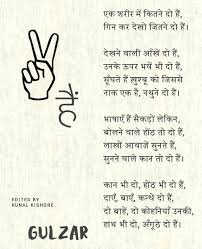 एक शरीर में कितने दो हैं,
गिन कर देखो जितने दो हैं।
देखने वाली आँखें दो हैं,
उनके ऊपर भवें भी दो हैं,
सूँघते हैं ख़ुश्बू को जिससे
नाक एक है, नथुने दो हैं।
भाषाएँ हैं सैकड़ों लेकिन,
बोलने वाले होंठ तो दो हैं,
लाखों आवाज़ें सुनते हैं,
सुनने वाले कान तो दो हैं।
कान भी दो, होंठ भी दो हैं,
दाएँ, बाएँ, कन्धे दो हैं,
दो बाहें, दो कोहनियाँ उनकी,
हाथ भी दो, अँगूठे दो हैं।
EDITED BY
KUNAL KISHORE
GULZAR